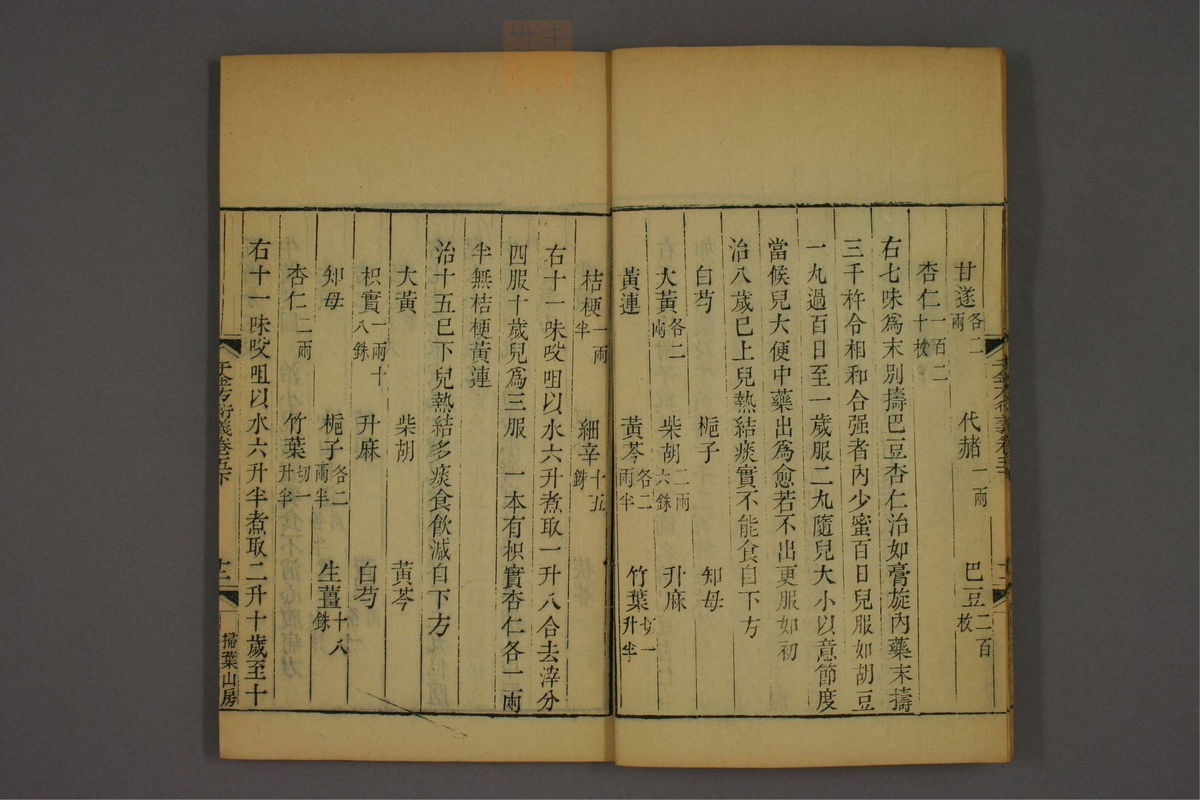 甘遂各二兩　代赭一兩　巴豆二百枚
杏仁一百二十枚
右七味為末別擣巴豆杏仁治如膏旋內藥末擣
三千杵令相和合强者內少蜜百日兒服如胡豆
一丸過百日至一歲服二丸隨兒大小以意節度
當候兒大便中藥出為愈若不出更服如初
治八歲已上兒熱結痰實不能食自下方
白芍　梔子　知母
大黃各二兩　柴胡二兩六銖　升麻
黃連　黃芩各二兩半　竹葉切一升半
桔梗一兩半　細辛十五銖
右十一味㕮咀以水六升煮取一升八合去滓分
四服十歲兒為三服　一本有枳實杏仁各一兩
半無桔梗黃連
治十五已下兒熱結多痰食飲減自下方
大黃　柴胡　黃芩
枳實一兩十八銖　升麻　白芍
知母　梔子各二兩半　生薑十八銖
杏仁二兩　竹葉切一升半
右十一味㕮咀以水六升半煮取二升十歲至十
千金方衍義卷五下
十二
掃葉山房